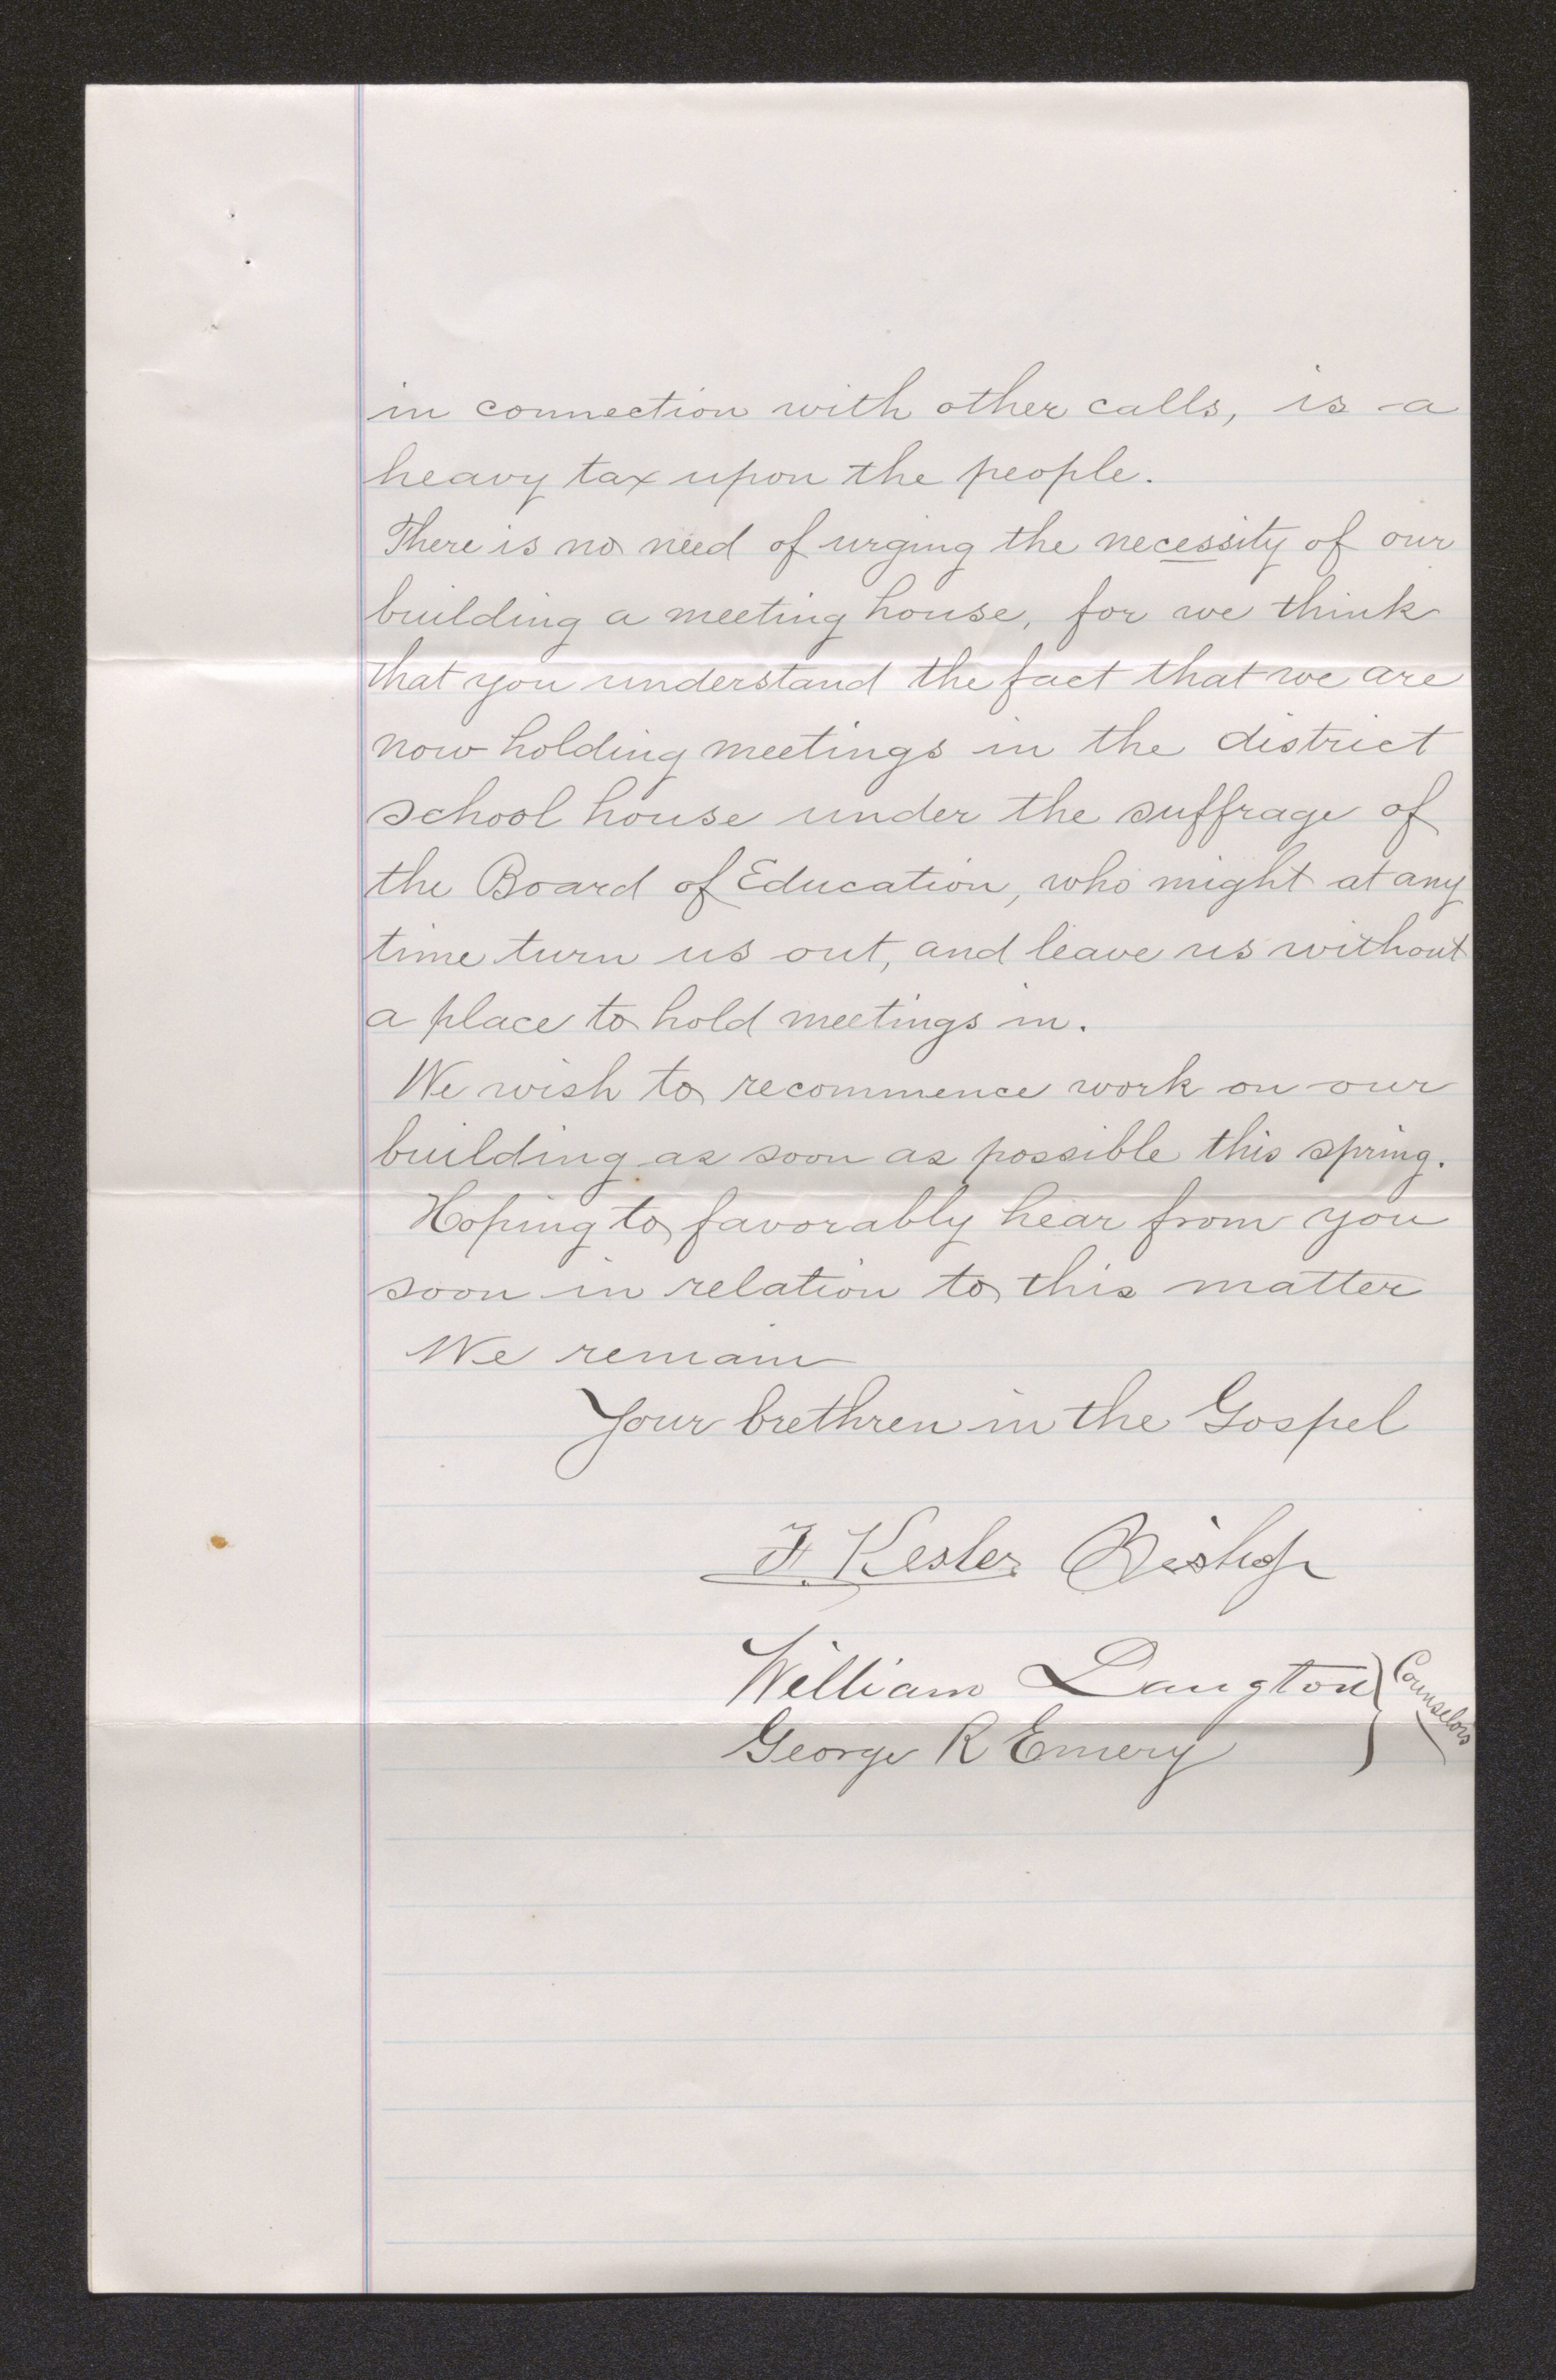 in connection with other calls, is a
heavy tax upon the people.
There is no need of urging the necessity of our
building a meeting house, for we think
that you understand the fact that we are
now holding meetings in the district
school house under the suffrage of
the Board of Education, who might at any
time turn us out, and leave us without
a place to hold meetings in.
We wish to recommence work on our
building as soon as possible this spring.
Hoping to favorably hear from you
soon in relation to this matter
We remain
Your brethren in the Gospel
F. Kesler Bishop
William Langton } Counselors
George R Emery